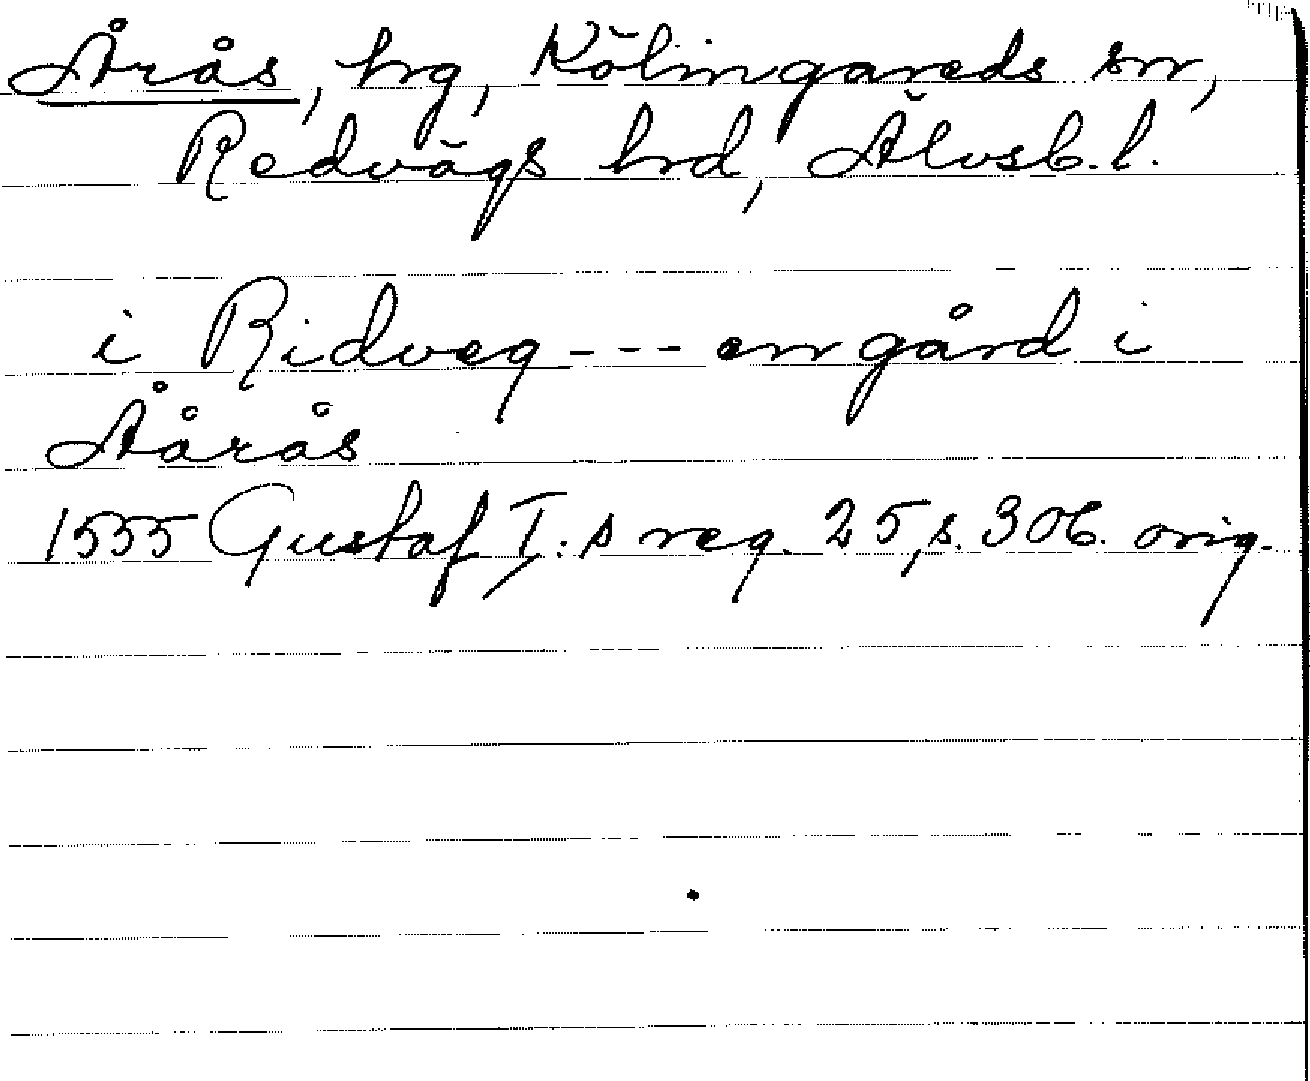 Årås, hg, Kölingareds sn,
Redvägs hd, Älvsb. l.
i Ridveg --- en gård i
Åårås
1555 Gustaf I:s reg. 25, s. 306. orig.